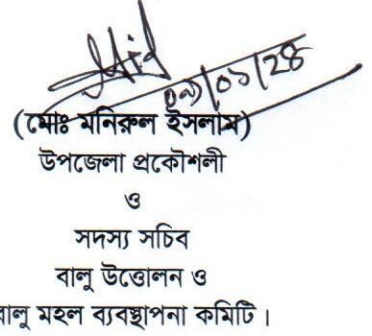 (মোঃ মনিরুল ইসলাম)
উপজেলা প্রকৌশলী
ও
সদস্য সচিব
বালু উত্তোলন ও
বালু মহল ব্যবস্থাপনা কমিটি।